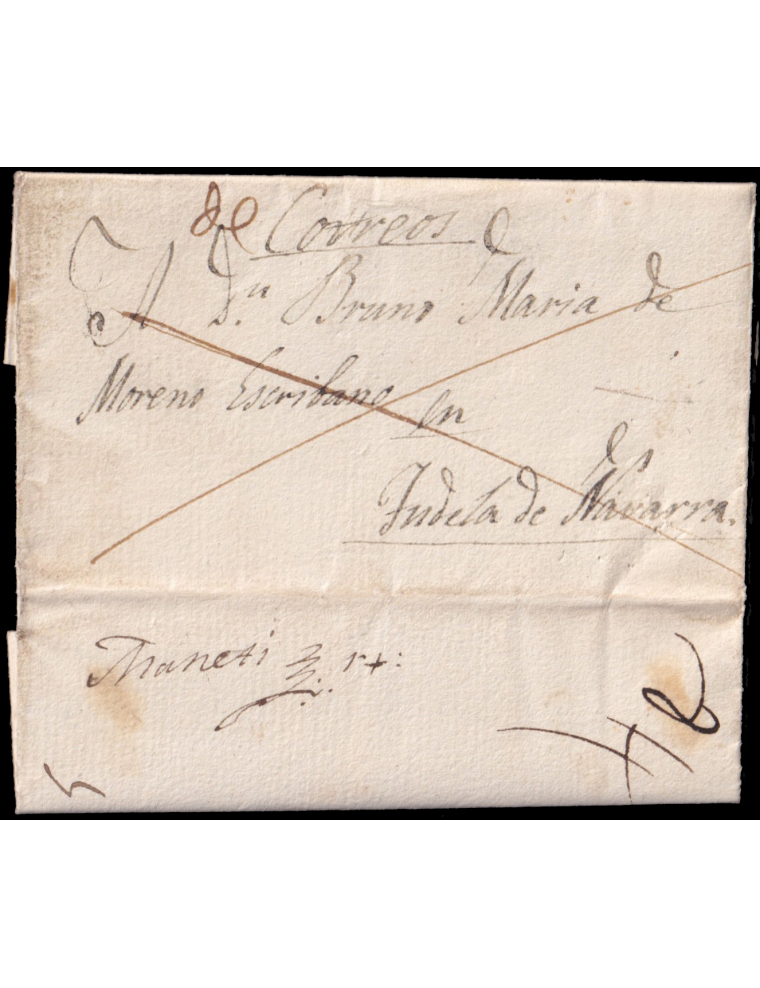 de Correos
A D.n Bruno Maria de
Moreno Escribano en
Tudela de Navarra.